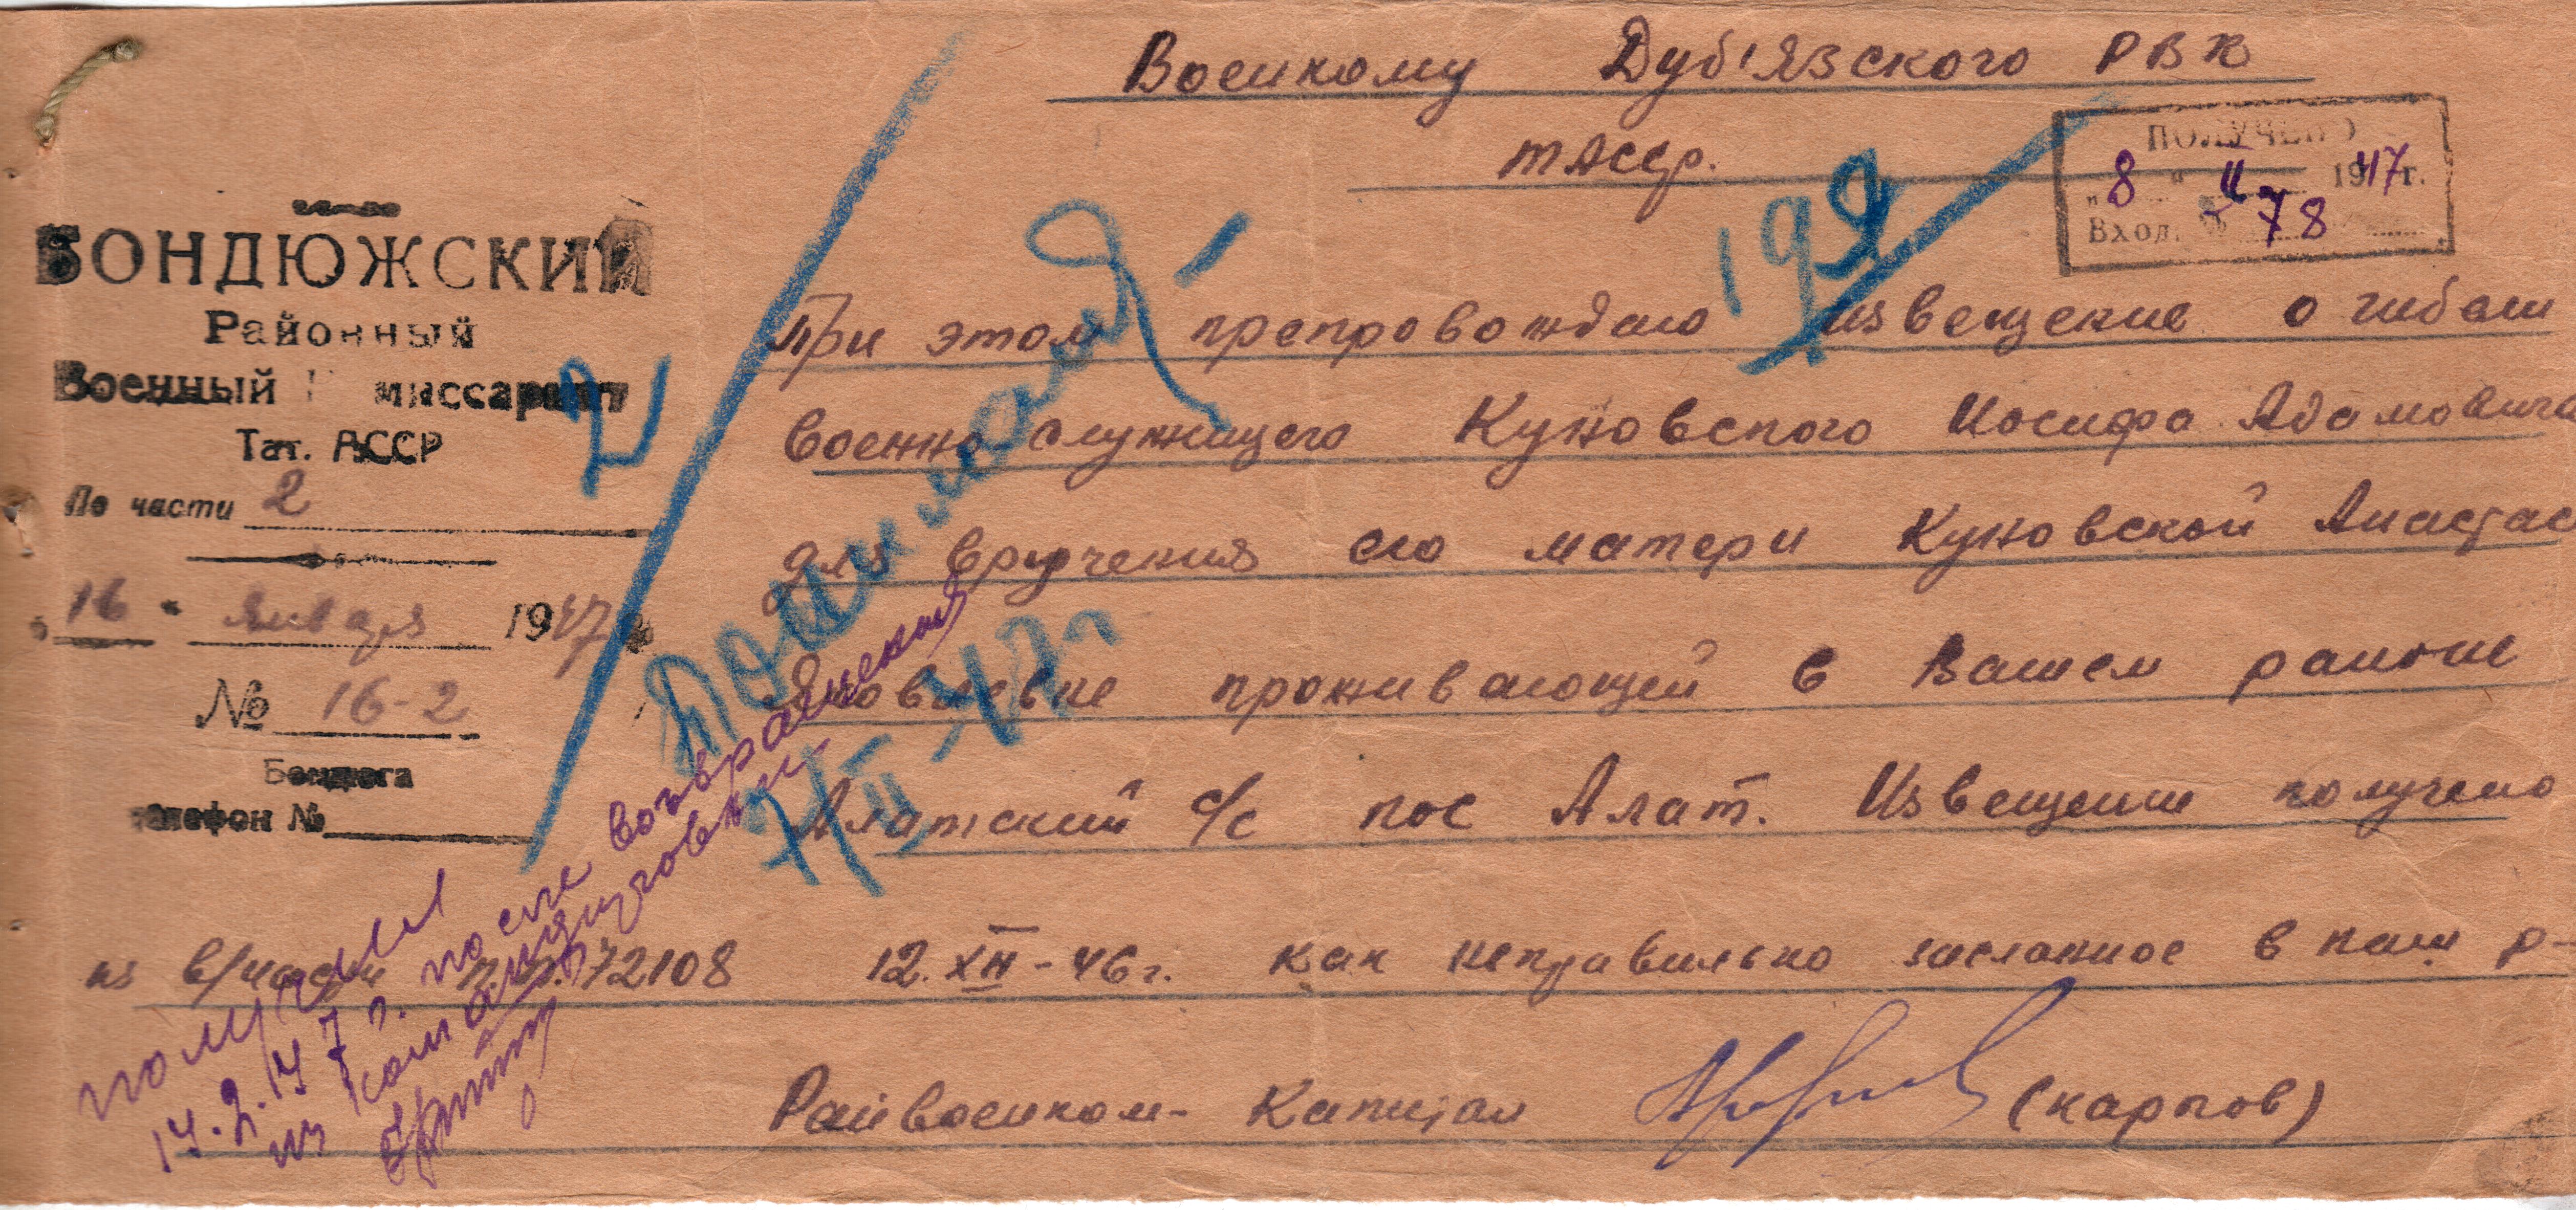 Военкому Дуб'язского РВК
тАССР.
ПОЛУЧЕНО
"8" II 1947 г.
Вход. № 78
БОНДЮЖСКИЙ
Районный
Военный миссариат
Тат. АССР
По части 2
"16" января 1947
№ 16-2
Бондюга
телефон №
2
199
При этом препровождаю извещение о гибели
военно служищего Куновского Иосифа Адамовича
для вручения его матери Куновской Анастас
Яковлевне проживающей в Вашем районе
Алатский с/с пос Алат. Извещение получено
из в/части п.п. 72108 12.XII-46г. как неправильно засланное в наш р-
Райвоенком- Капитан (карпов)
7/II-47г
получил
14.2.47г. после возвращения
из командировки